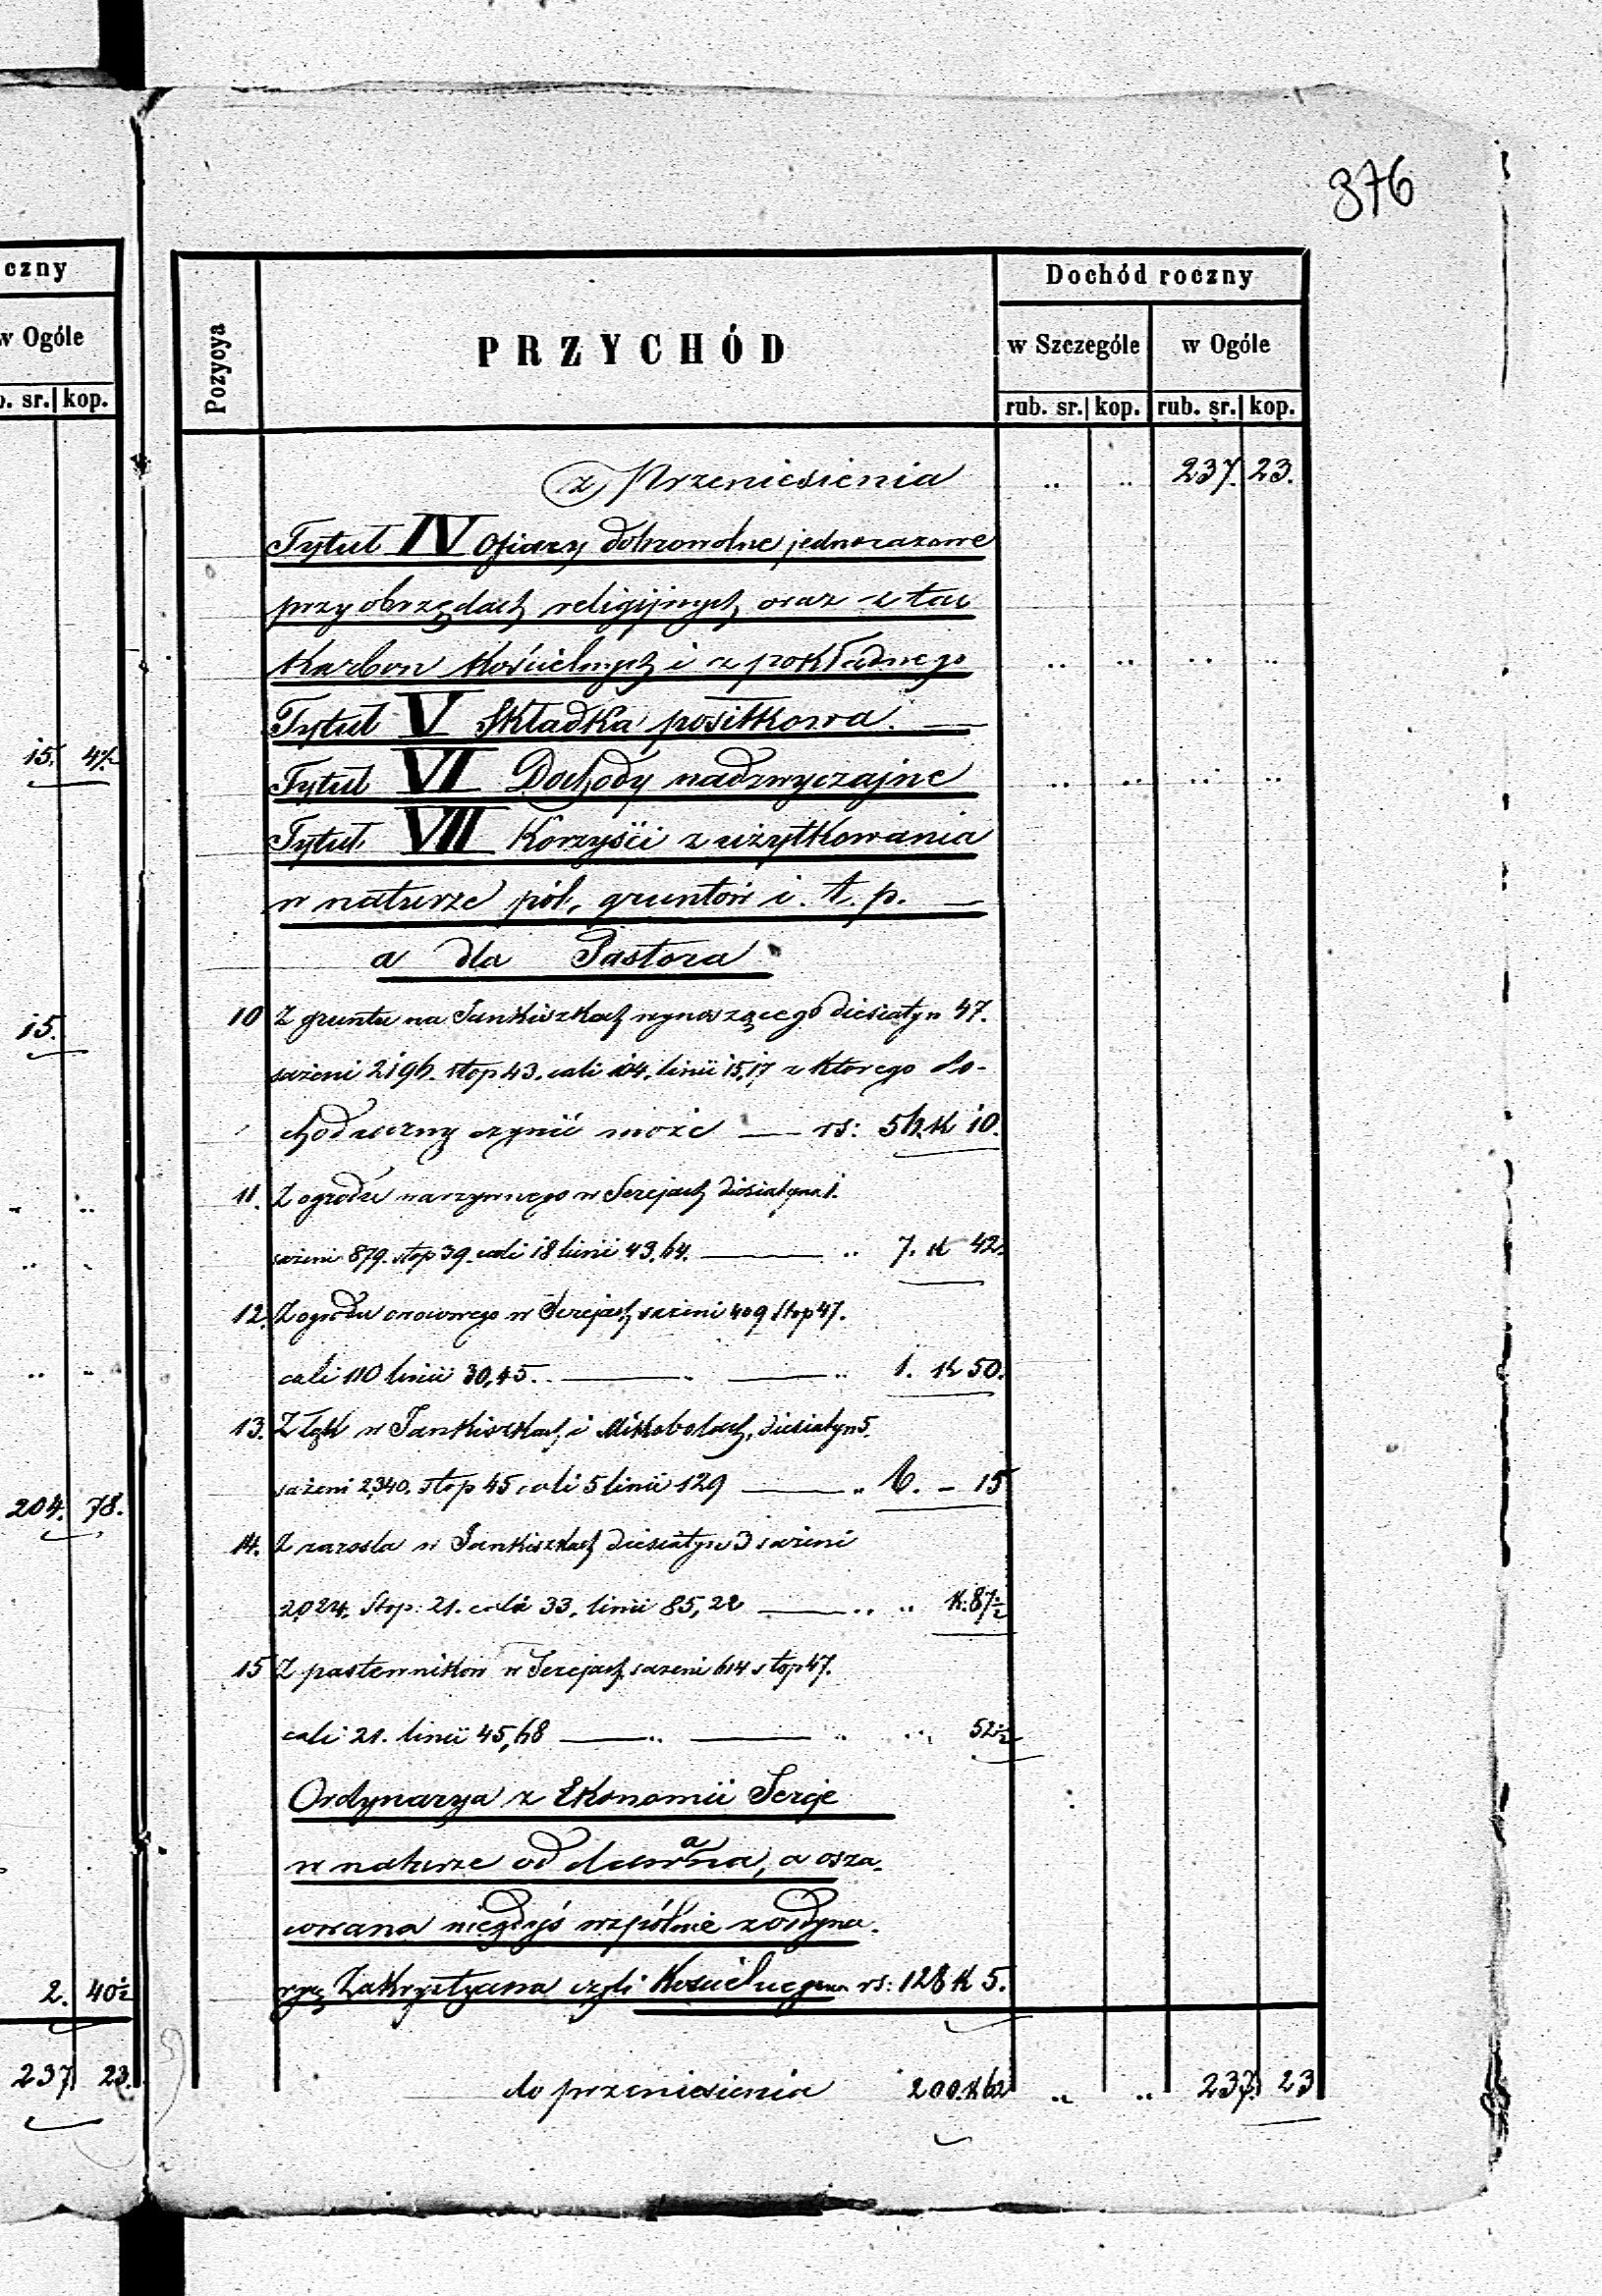 376
czny
w Ogóle
. sr. kop.
15. 4½
15.
204. 78.
2. 40½
237 23.
Dochód roczny
Pozycya
PRZYCHÓD
w Szczególe
w Ogóle
rub. sr. kop. rub. sr. kop.
z Przeniesienia .. .. 237. 23.
Tytuł IV Ofiary dobrowolne jednorazowe
przy obrzędach religijnych oraz z tac
karbon Kościelnych i z pokładnego .. .. .. ..
Tytuł V Składka positkowa. —
Tytuł VI Dochody nadzwyczajne .. .. .. ..
Tytuł VII Korzyści z użytkowania
w naturze pól, gruntów i. t. p. —
a dla Pastora
10 Z gruntu na Jankiszkach wynoszącego diesiatyn 47.
sażeni 2196. stop 43. cali 104. linii 15,17 z którego do-
chód roczny czynić może — rs: 56. k 10.
11. Z ogrodu warzywnego w Serejach diesiatyna 1.
sażeni 879. stop 39. cali 18 linii 43,64. — .. 7. k 42.
12. Z ogrodu owocowego w Serejach sażeni 409 stop 47.
cali 110 linii 30,45. — .. — .. 1. k 50.
13. Z łąk w Jankiszkach i Mikabolach, diesiatyn 5.
sażeni 2,340. stop 45 cali 5 linii 129 — .. 6. – 15
14. Z zarosla w Jankiszkach diesiatyn 3 sażeni
2,024. stop: 21. cali 33. linii 85,22 — .. .. k: 87½
15 Z pastewników w Serejach, sażeni 614 stop 47.
cali 21. linii 45,68 — .. — .. .. 52½
Ordynarya z Ekonomii Sereje
w naturze od dawna, a osza-
cowana niegdyś wspólnie z ordyna-
ryą Zakrystyana czyli Kościelnego rs: 128 k 5.
do przeniesienia 200. k 62 .. .. 237. 23